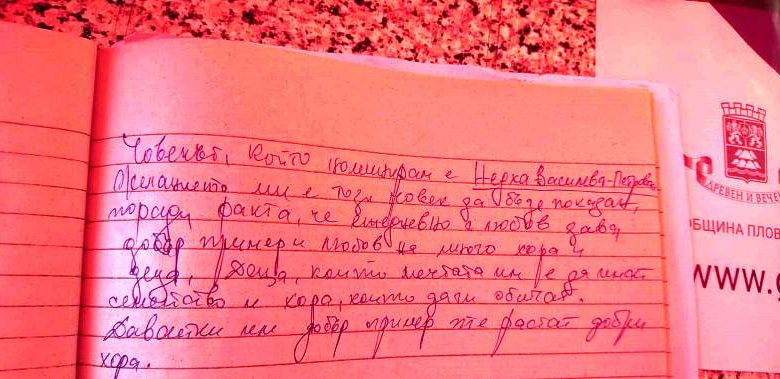 Човекът, който номинирам е Нерха Василева-Петрова.
Желанието ми е този човек да бъде показан,
поради факта, че ежедневно с любов дава
добър пример и любов на много хора и
деца, Деца, които мечтата им е да имат
семейство и хора, които да ги обичат.
Давайки им добър пример те растат добри
хора.
ДРЕВЕН И ВЕЧЕ
ОБЩИНА ПЛОВ
WWW.